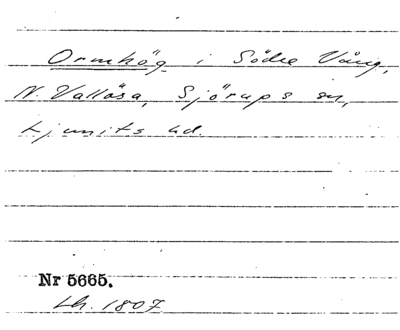 Ormhög i Södre Vång,
N. Vallösa, Sjörups sn,
Ljunits hd.
Nr 5665.
Lh. 1807